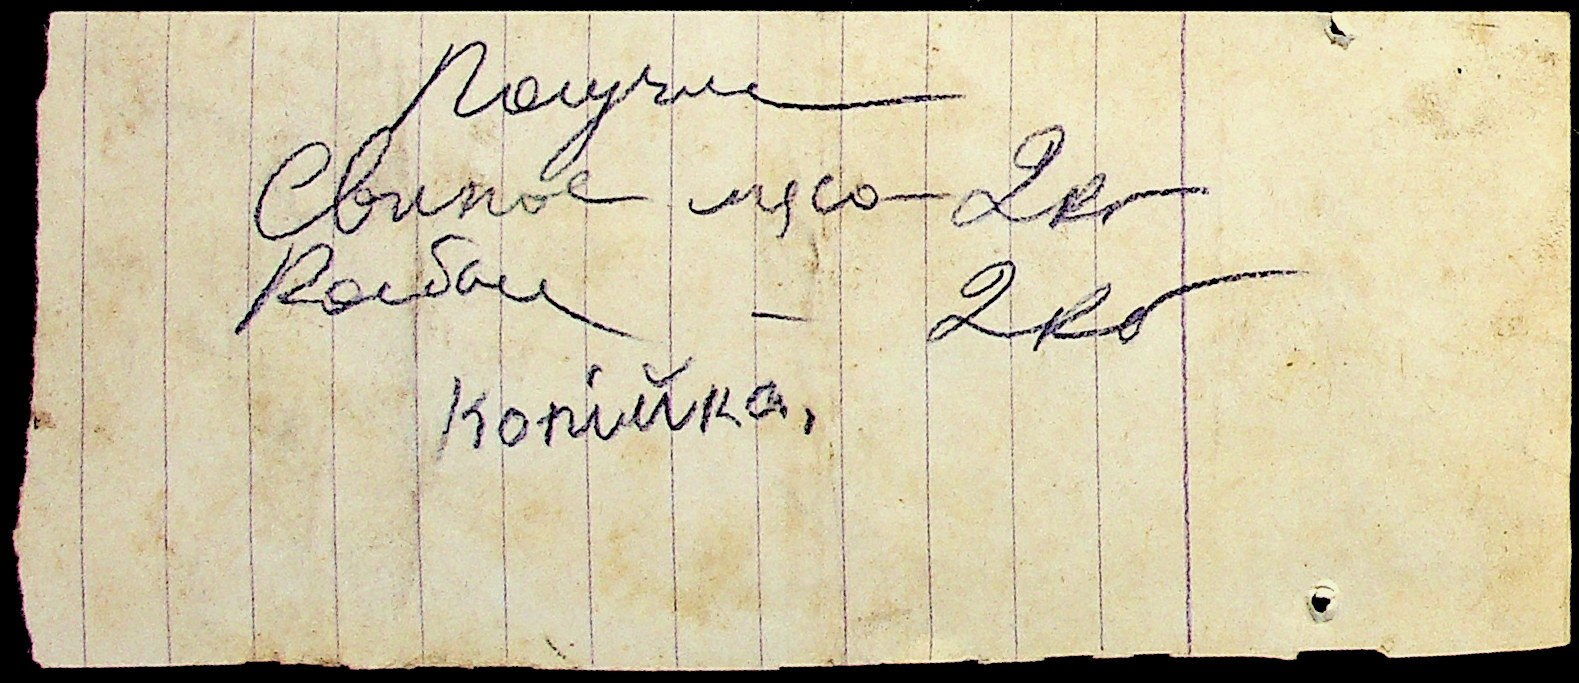 Получил
Свиное мясо – 2 кг
Колбаси – 2 кг
Копійка.